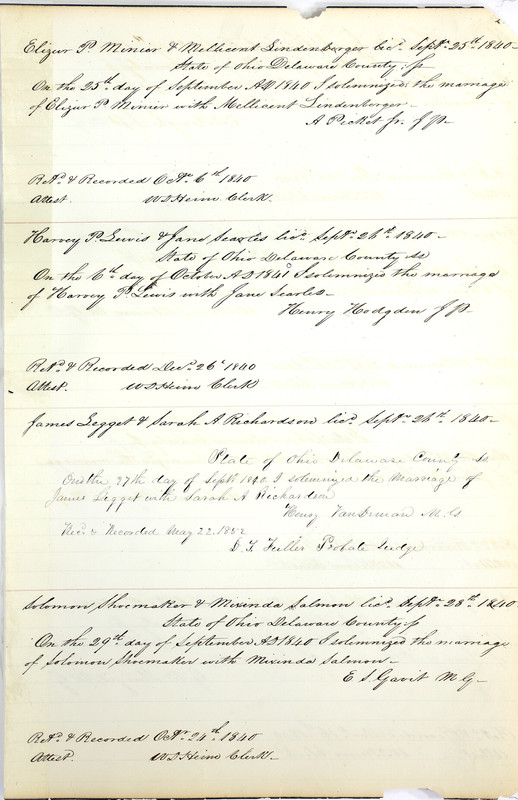 Elizur P. Minier & Mellicent Lindenberger licd. Septr. 25th. 1840-
State of Ohio Delaware County, ss
On the 25th. day of September AD 1840 I solemnized the marriage
of Elizur P Minier with Mellicent Lindenberger-
A Picket Jr. J P-
Retd. & Recorded Octr. 6th 1840
Attest. W D Heim Clerk.
Harvey P. Lewis & Jane Searles licd. Septr. 26th. 1840-
State of Ohio Delaware County ss
On the 6th. day of October AD 1840 I solemnized the marriage
of Harvey P. Lewis with Jane Searles-
Henry Hodgden J P-
Retd. & Recorded Decr. 26th 1840
Attest. W D Heim Clerk
James Legget & Sarah A Richardson licd. Septr. 26th. 1840-
State of Ohio Delaware County ss
On the 27th day of Septr 1840 I solemnized the Marriage of
James Legget with Sarah A Richardson
Henry VanDeman M. G
Rec. & Recorded May 22. 1852
D. T. Fuller Probate Judge
Solomon Shoemaker & Mirinda Salmon licd. Septr. 28th. 1840-
State of Ohio Delaware County ss
On the 29th. day of September AD 1840 I solemnized the marriage
of Solomon Shoemaker with Mirinda Salmon-
E S Gavit M G-
Retd. & Recorded Octr. 24th. 1840
Attest. W D Heim Clerk-